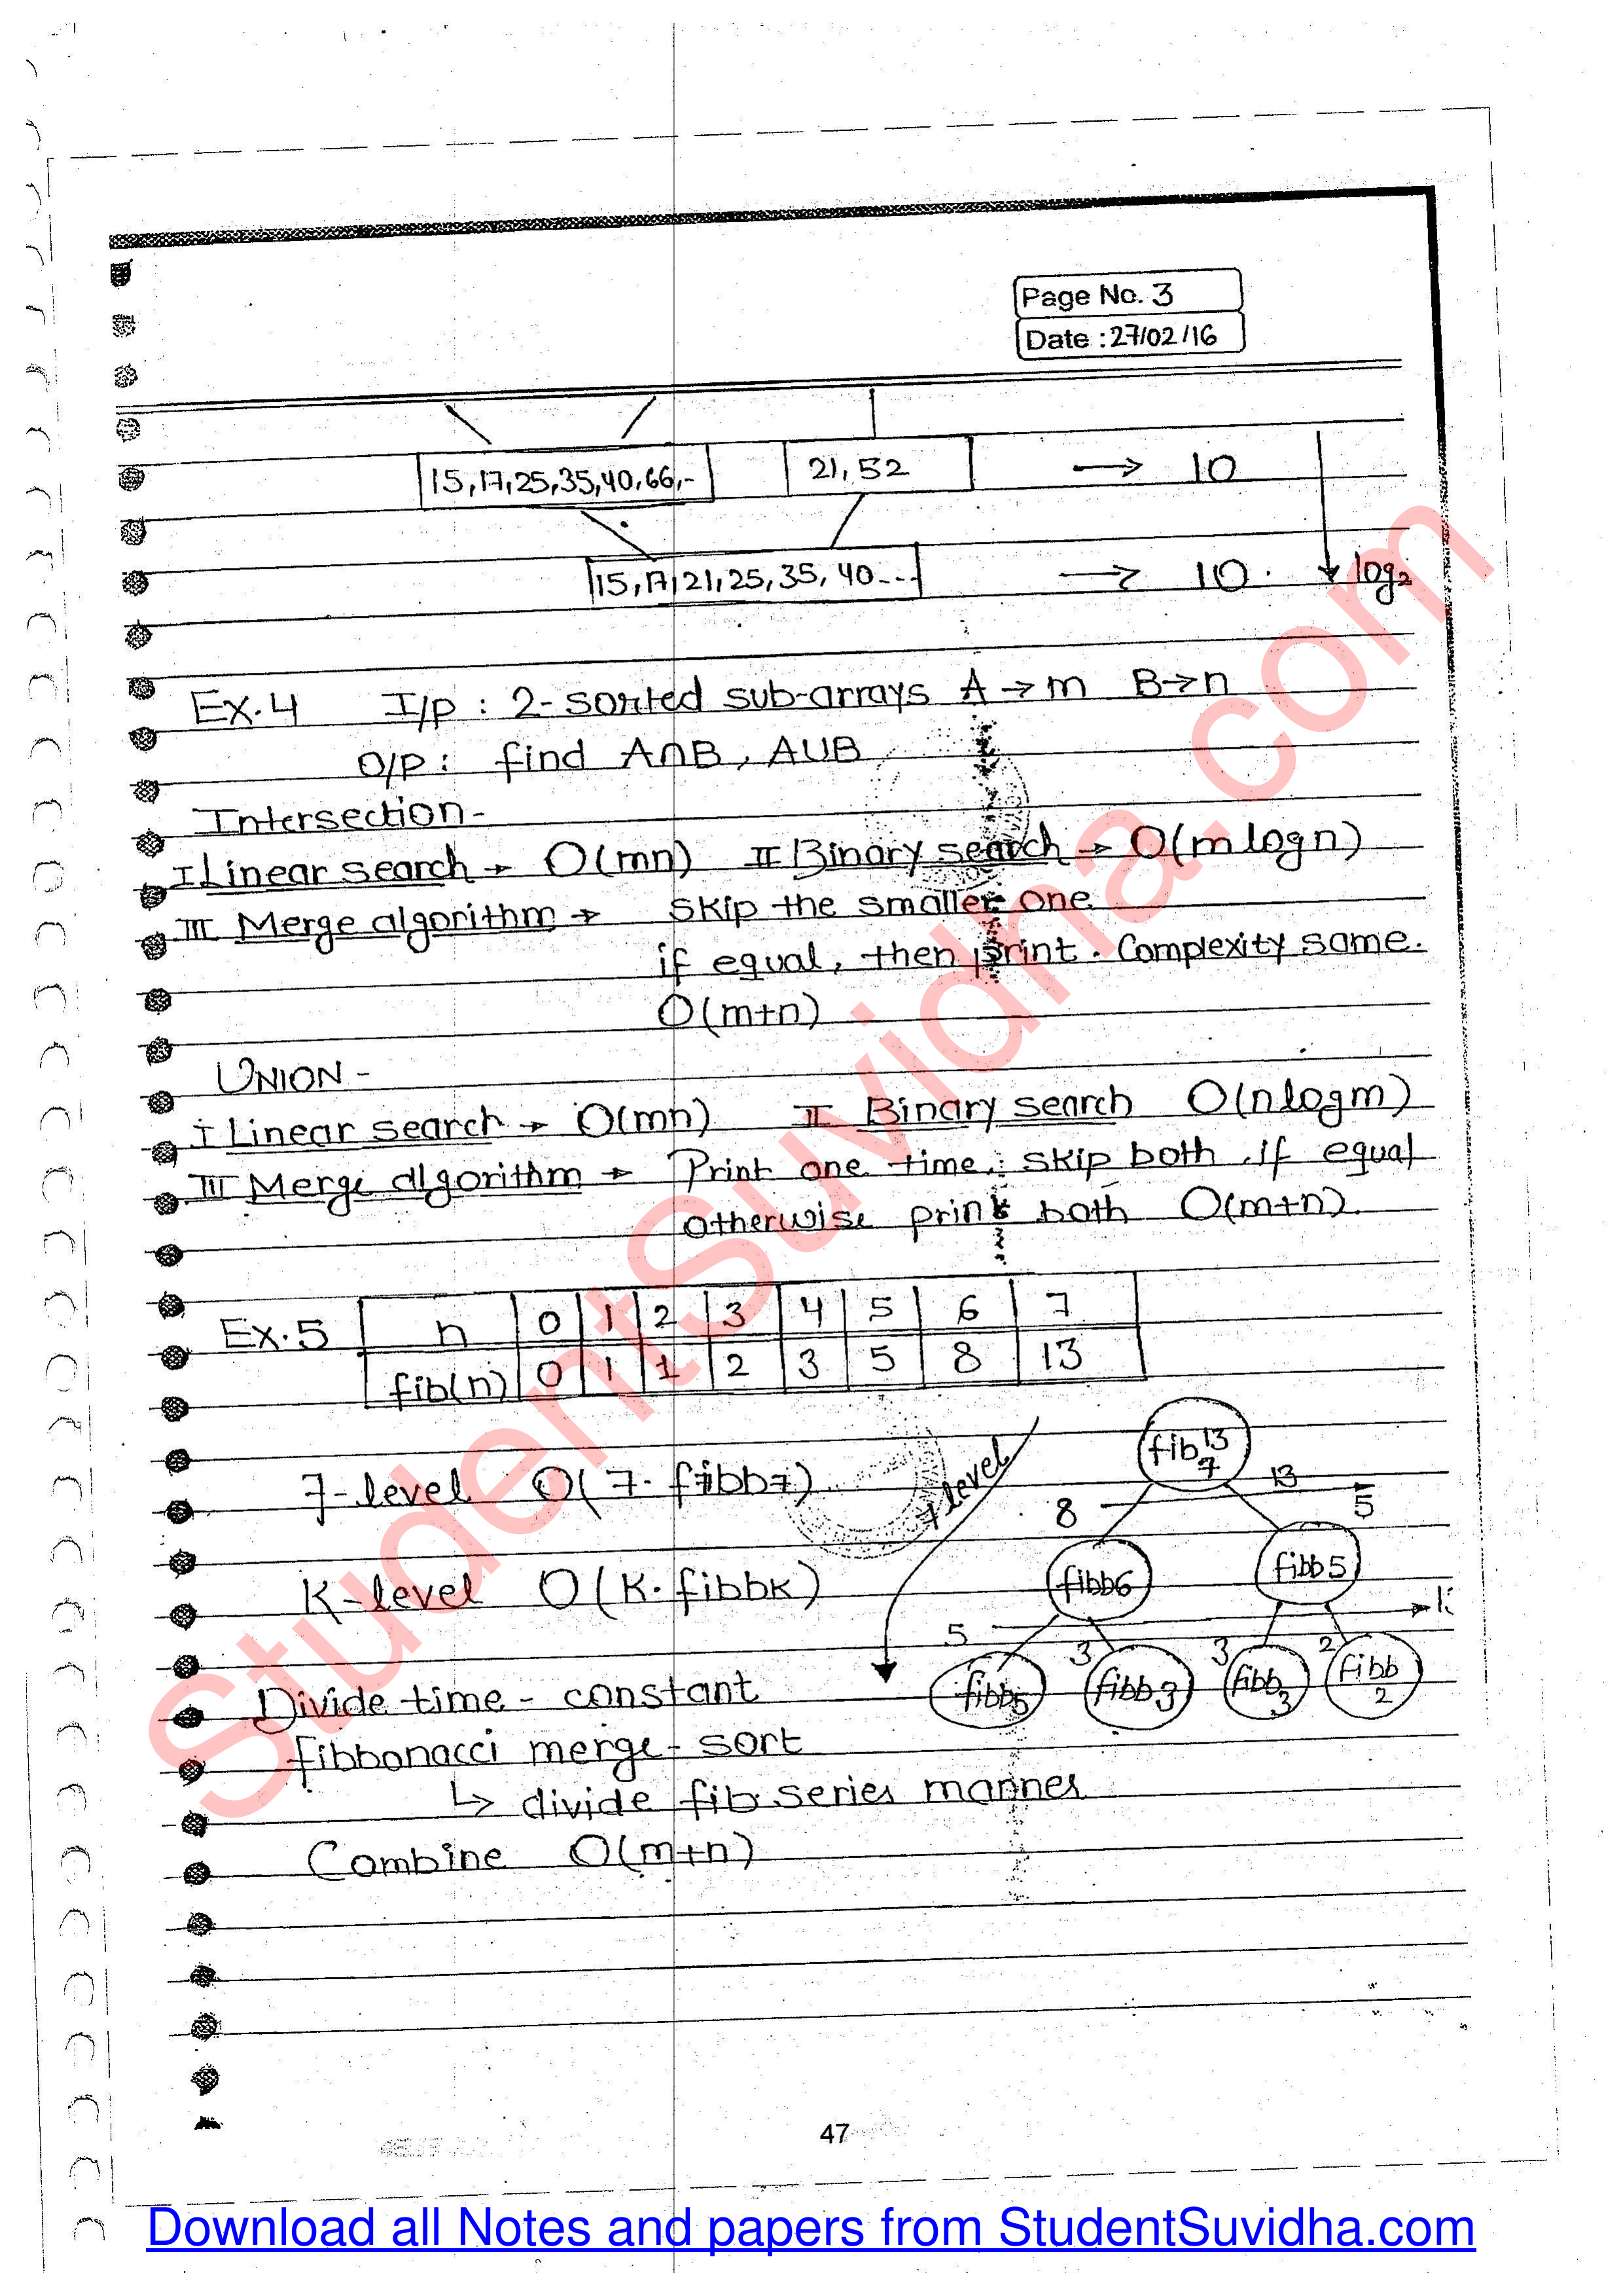 Page No. 3
Date : 27/02/16
15,17,25,35,40,66,- 21,52 → 10
15,17,21,25,35,40--- → 10. log₂
Ex.4 I/p : 2-sorted sub-arrays A→m B→n
O/p : find A∩B, A∪B
Intersection-
I Linear search → O(mn) II Binary search → O(m logn)
III Merge algorithm → skip the smaller one
if equal, then print. Complexity same.
O(m+n)
UNION -
I Linear search → O(mn) II Binary search O(nlogm)
III Merge algorithm → Print one time, skip both if equal
otherwise print both O(m+n).
Ex.5 n 0 1 2 3 4 5 6 7
fib(n) 0 1 1 2 3 5 8 13
fib 13 7
7-level O(7. fibb7) 7 level 8 13 5
K-level O(K. fibbK) fibb6 fibb5
5 3 3 2
fibb5 fibb3 fibb3 fibb2
Divide time - constant
fibbonacci merge-sort
↳ divide fib series manner
Combine O(m+n)
47
StudentSuvidha.com
Download all Notes and papers from StudentSuvidha.com